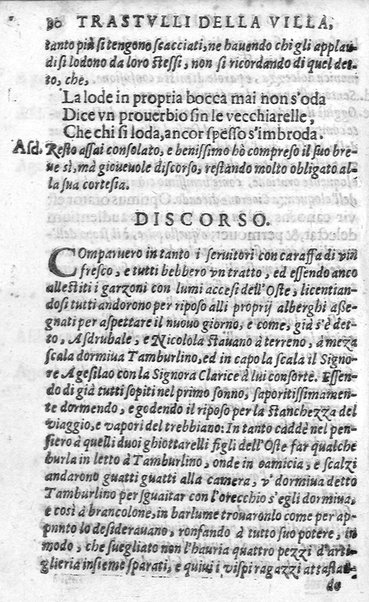 30 TRASTVLLI DELLA VILLA,
tanto piu si tengono scacciati, ne hauendo chi gli applau
di si lodono da loro stessi, non si ricordando di quel det-
to, che,
La lode in propria bocca mai non s'oda
Dice vn prouerbio sin le vecchiarelle,
Che chi si loda, ancor spesso s'imbroda.
Asd. Resto assai consolato, e benissimo hò compreso il suo bre
ue sì, ma gioueuole discorso, restando molto obligato al
la sua cortesia.
DISCORSO.
Comparuero in tanto i seruitori con caraffa di vin
fresco, e tutti bebbero vn tratto, ed essendo anco
allestiti i garzoni con lumi accesi dell'Oste, licentian-
dosi tutti andorono per riposo alli proprij alberghi aße-
gnati per aspettare il nuouo giorno, e come, già s'è det-
to, Asdrubale, e Nicolola stauano à terreno, à meza
scala dormiua Tamburlino, ed in capo la scala il Signo
re Agesilao con la Signora Clarice à lui consorte. Essen-
do di già tutti sopiti nel primo sonno, saporitissimamen-
te dormendo, e godendo il riposo per la stanchezza del
viaggio, e vapori del trebbiano: In tanto caddè nel pen-
siero à quelli duoi ghiottarelli figli dell'Oste far qualche
burla in letto à Tamburlino, onde in camicia, e scalzi
andarono guatti guatti alla camera, v' dormiua detto
Tamburlino per sguaitar con l'orecchio s'egli dormiua,
e così à brancolone, in barlume trouaronlo come per ap-
punto lo desiderauano, ronfando à tutto suo potere, in
modo, che suegliato non l'hauria quattro pezzi d'arti-
glieria insieme sparati, e quiui i vispi ragazzi attastan-
do